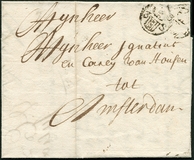 Mynheer
Mynheer Ignatius
en Coney van Housen
tot
Amsterdam